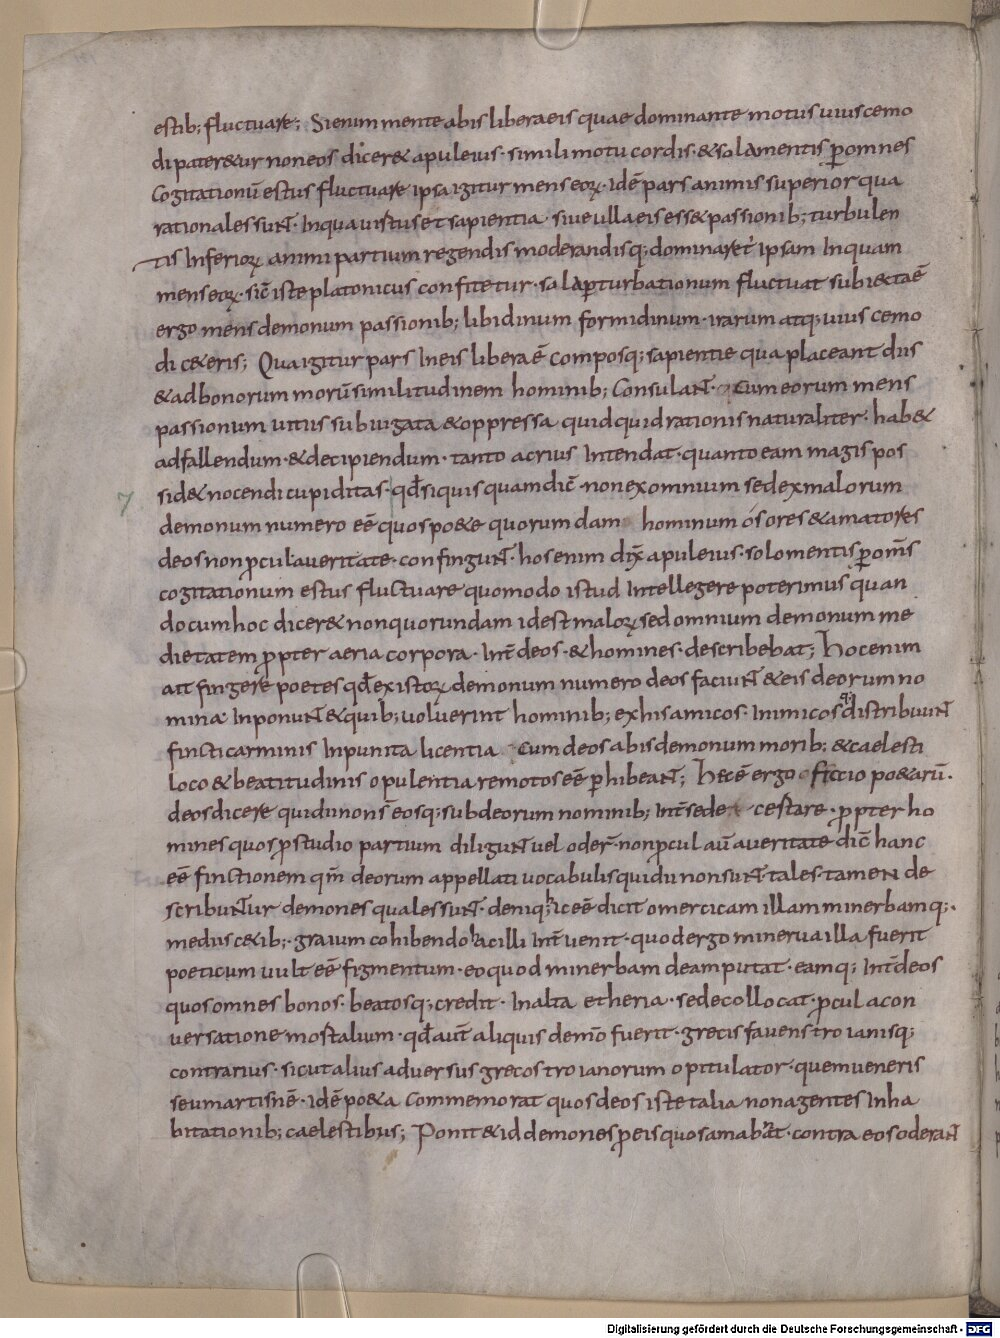 estib; fluctuare; Sienim mente abis libera eis quae dominante motus uiuscemo
di pater&ur non eos dicer& apuleius · simili motu cordis · & salo mentis p̱ omnes
Cogitationū estus fluctuare ipsa igitur mens eoꝝ · idē pars animis superior qua
rationales suNT · In qua uistus et sapientia · siue ulla eis ess& passionib; turbulen
tis Inferioꝝ animi partium regendis moderandisq; dominaret' ipsam Inquam
mens eoꝝ · sic̄ iste platonicus confitetur · salo pturbationum fluctuat subiecta ē
ergo mens demonum passionib; libidinum formidinum · irarum atq; uiuscemo
di c&eris; Qua igitur pars In eis libera ē Composq; sapientie qua placeant diis
& ad bonorum morū similitudinem hominib; ConsulaNT · Cum eorum mens
passionum uitiis subiugata & oppressa quidquid rationis naturaliter · hab&
ad fallendum · & decipiendum · tanto acrius Intendat · quanto eam magis pos
sid& nocendi cupiditas · qđ si quis quam dic̄ · non ex omnium sed ex malorum
7
demonum numero eē quos po&e quorumdam hominum osores & amatores
deos non ꝓcul a ueritate · confinguNT · hos enim dix̄ apuleius · solo mentis p̱ om̄s
cogitationum estus fluctuare quomodo istud Intellegere poterimus quan
do cum hoc dicer& non quorundam id est maloꝝ sed omnium demonum me
dietatem ꝓpter aeria corpora · Int̄ deos · & homines · describebat; Hoc enim
ait fingere poetes qđ ex istoꝝ demonum numero deos faciuNT & eis deorum no
mina InponuNT & quib; uoluerint hominib; ex his amicos · Inimicos q; distribuuNT
ficti carminis Inpunita licentia · Cum deos abis demonum morib; & caelesti
loco & beatitudinis opulentia remotos eē p̱hibeaNT; Hec ē ergo fictio po&arū ·
deos dicere qui dii non s̄ eosq; sub deorum nominib; Int̄ se de cestare · ꝓpter ho
mines quos ꝓ studio partium diliguNT uel oder̄ · non ꝓcul aū a ueritate dic̄ hanc
eē finctionem qm̄ deorum appellati uocabulis qui dii non suNT tales · tamen de
scribuNTur demones quales suNT · deniq; hic eē dicit omercicam illam minerbamq; ·
mediis c&ib; · graium cohibendo hacilli Int̄uenit · quod ergo minerua illa fuerit
poeticum uult eē figmentum · eo quod minerbam deam putat · eamq; Int̄ deos
quos omnes bonos · beatosq; credit · In alta etheria · sede collocat · ꝓcul a con
uersatione mostalium · qđ aut̄ aliquis demō fuerit · grecis fauens troianisq;
contrarius · sicut alius aduersus grecos troianorum opitulator · quem ueneris
seu martis nē · idē po&a Commemorat quos deos iste talia non agentes Inha
bitationib; caelestibus; Ponit & id demones ꝓ eis quos amabant · contra eos oderaNT
Digitalisierung gefördert durch die Deutsche Forschungsgemeinschaft - DFG